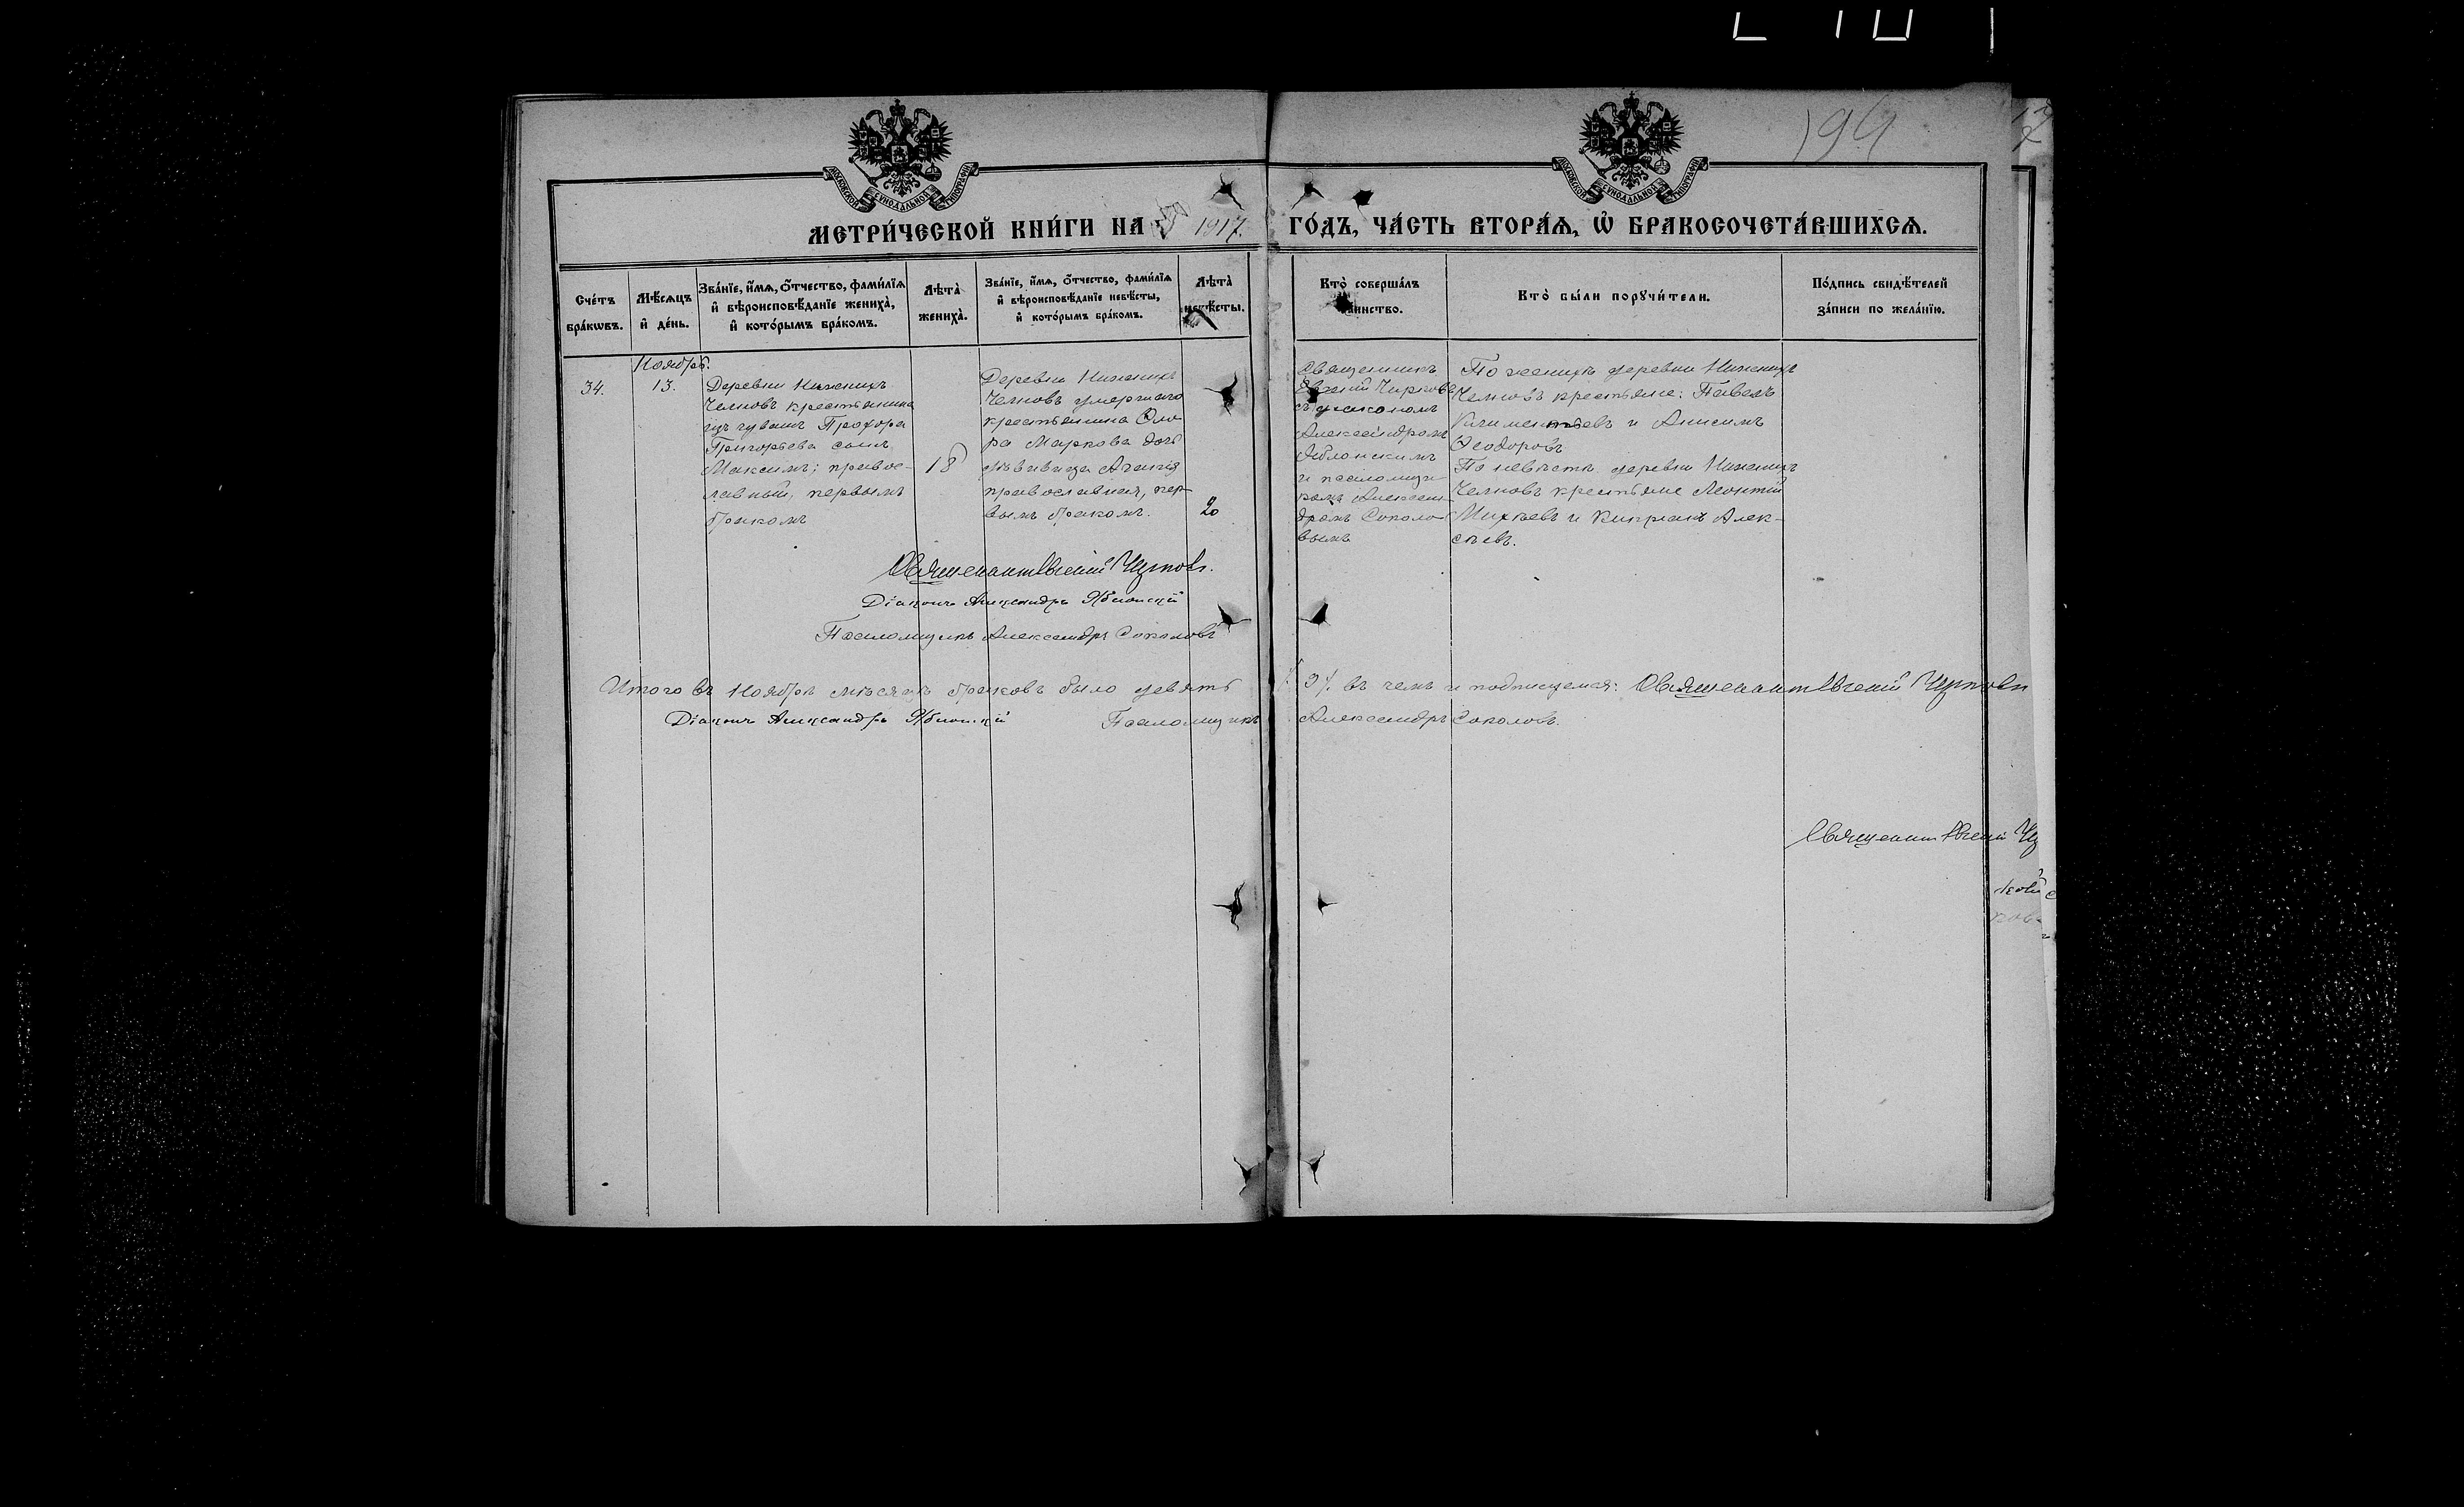 194
МОСКОВСКОЙ СѴНОДАЛЬНОЙ ТИПОГРАФІИ
МОСКОВСКОЙ СѴНОДАЛЬНОЙ ТИПОГРАФІИ
МЕТРИ́ЧЕСКОЙ КНИ́ГИ НА 1917. ГО́ДЪ, ЧА́СТЬ ВТОРА́Ѧ, Ѽ БРАКОСОЧЕТА́ВШИХСѦ.
Сче́тъ бра́кѡвъ.
Мѣ́сѧцъ и҆ де́нь.
Зва́нїе, и҆́мѧ, о҆́тчество, фами́лїѧ и҆ вѣроисповѣ́данїе жениха̀, и҆ кото́рымъ бра́комъ.
Лѣта̀ жениха̀.
Зва́нїе, и҆́мѧ, о҆́тчество, фами́лїѧ и҆ вѣроисповѣ́данїе невѣ́сты, и҆ кото́рымъ бра́комъ.
Лѣта̀ невѣ́сты.
Кто̀ соверша́лъ таинство.
Кто̀ бы́ли порꙋчи́тели.
По́дпись свидѣ́телей за́писи по жела́нїю.
34.
Ноябрь.
13.
Деревни Нижнихъ
Челновъ крестьянина
изъ чувашъ Прохора
Григорьева сынъ
Максимъ; правос-
лавный, первымъ
бракомъ
18
Деревни Нижнихъ
Челновъ умершаго
крестьянина
ра Маркова дочь
дѣвица
православная, пер-
вымъ бракомъ.
20
Священникъ
Евгеній
съ діакономъ
Александромъ
Яблонскимъ
и псаломщи-
комъ Алексан-
дромъ Соколо-
вымъ
По женихѣ деревни Нижнихъ
Челновъ крестьяне: Павелъ
Климентьевъ и Анисимъ
Ѳеодоровъ
По невѣстѣ деревни Нижнихъ
Челновъ крестьяне Леонтій
Михѣевъ и Кипріанъ Алек-
сѣевъ.
Священникъ Евгеній
Діаконъ Александръ Яблонскій
Псаломщикъ Александръ Соколовъ
Итого въ Ноябрѣ мѣсяцѣ браковъ было девять /9/. въ чемъ и подписуемся: Священникъ Евгеній
Діаконъ Александръ Яблонскій Псаломщикъ Александръ Соколовъ.
Священникъ Евгеній